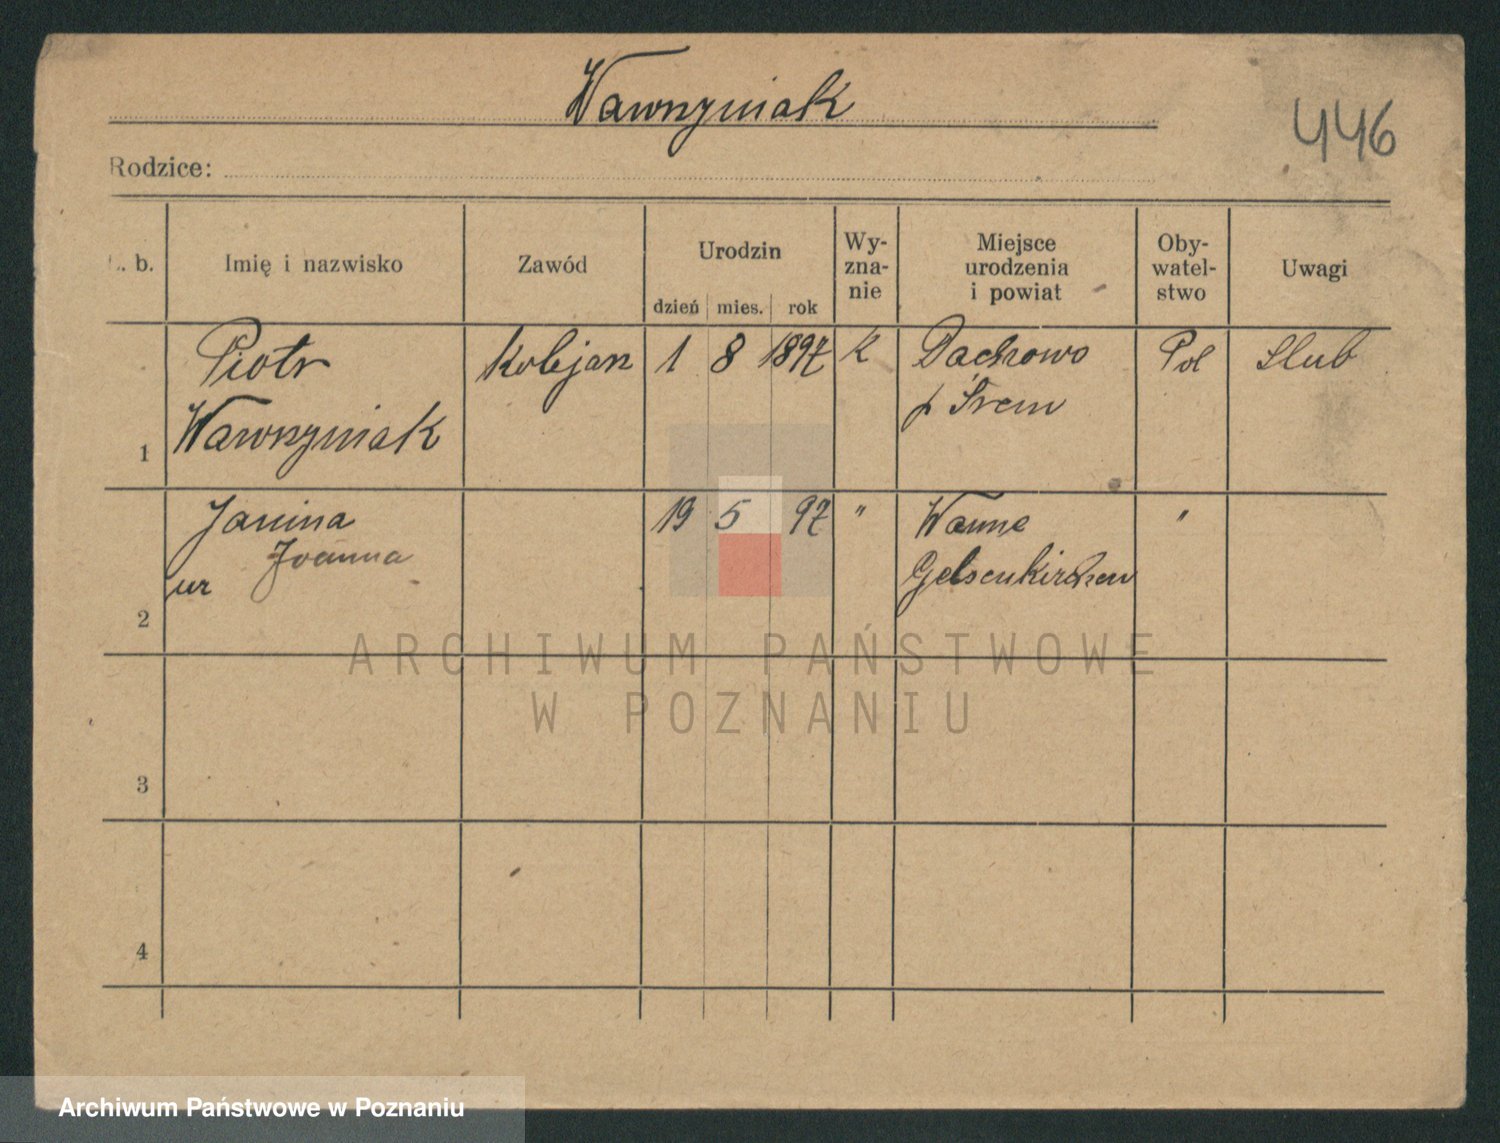 Wawrzyniak
446
Rodzice:
L. b.
Imię i nazwisko
Zawód
Urodzin
dzień mies. rok
Wy-
zna-
nie
Miejsce
urodzenia
i powiat
Oby-
watel-
stwo
Uwagi
1 Piotr Kolejarz 1 8 1897 k Dachowo Pol Slub
Wawrzyniak p Śrem
2 Janina 19 5 97 " Wanne "
Joanna Gelsenkirchen
ur
3
4
ARCHIWUM PAŃSTWOWE
W POZNANIU
Archiwum Państwowe w Poznaniu